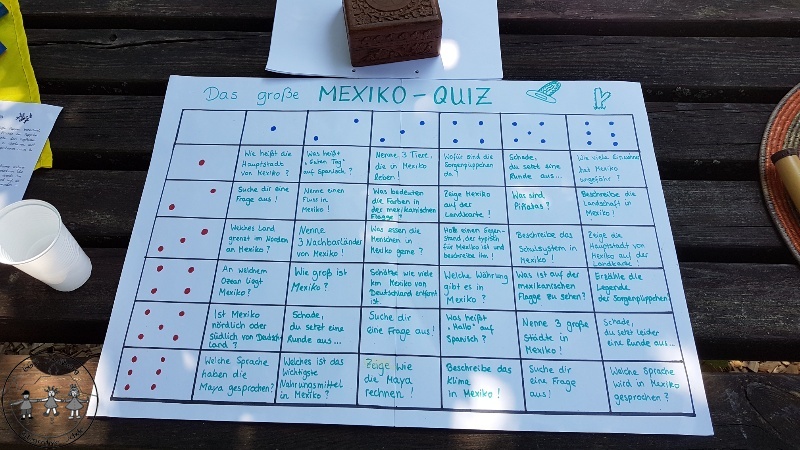 Das große MEXIKO-QUIZ
Wie heißt die
Hauptstadt
von Mexiko?
Was heißt
„Guten Tag"
auf Spanisch?
Nenne 3 Tiere,
die in Mexiko
leben!
Wofür sind die
Sorgenpüppchen
da?
Schade,
du setzt eine
Runde aus...
Wie viele Einwohner
hat Mexiko
ungefähr?
Suche dir eine
Frage aus!
Nenne einen
Fluss in
Mexiko!
Was bedeuten
die Farben in
der mexikanischen
Flagge?
Zeige Mexiko
auf der
Landkarte!
Was sind
Piñatas?
Beschreibe die
Landschaft in
Mexiko!
Welches Land
grenzt im Norden
an Mexiko?
Nenne
3 Nachbarländer
von Mexiko!
Was essen die
Menschen in
Mexiko gerne?
Hole einen Gegen-
stand, der typisch
für Mexiko ist und
beschreibe ihn!
Beschreibe das
Schulsystem in
Mexiko!
Zeige die
Hauptstadt von
Mexiko auf der
Landkarte!
An welchem
Ozean liegt
Mexiko?
Wie groß ist
Mexiko?
Schätze wie viele
km Mexiko von
Deutschland entfernt
ist.
Welche Währung
gibt es in
Mexiko?
Was ist auf der
mexikanischen
Flagge zu sehen?
Erzähle die
Legende
der Sorgenpüppchen
Ist Mexiko
nördlich oder
südlich von Deutsch-
land?
Schade,
du setzt eine
Runde aus...
Suche dir
eine Frage aus!
Was heißt
„Hallo" auf
Spanisch?
Nenne 3 große
Städte in
Mexiko!
Schade,
du setzt leider
eine Runde aus...
Welche Sprache
haben die
Maya gesprochen?
Welches ist das
wichtigste
Nahrungsmittel
in Mexiko?
Zeige wie
die Maya
rechnen!
Beschreibe das
Klima
in Mexiko!
Suche dir
eine Frage
aus!
Welche Sprache
wird in Mexiko
gesprochen?